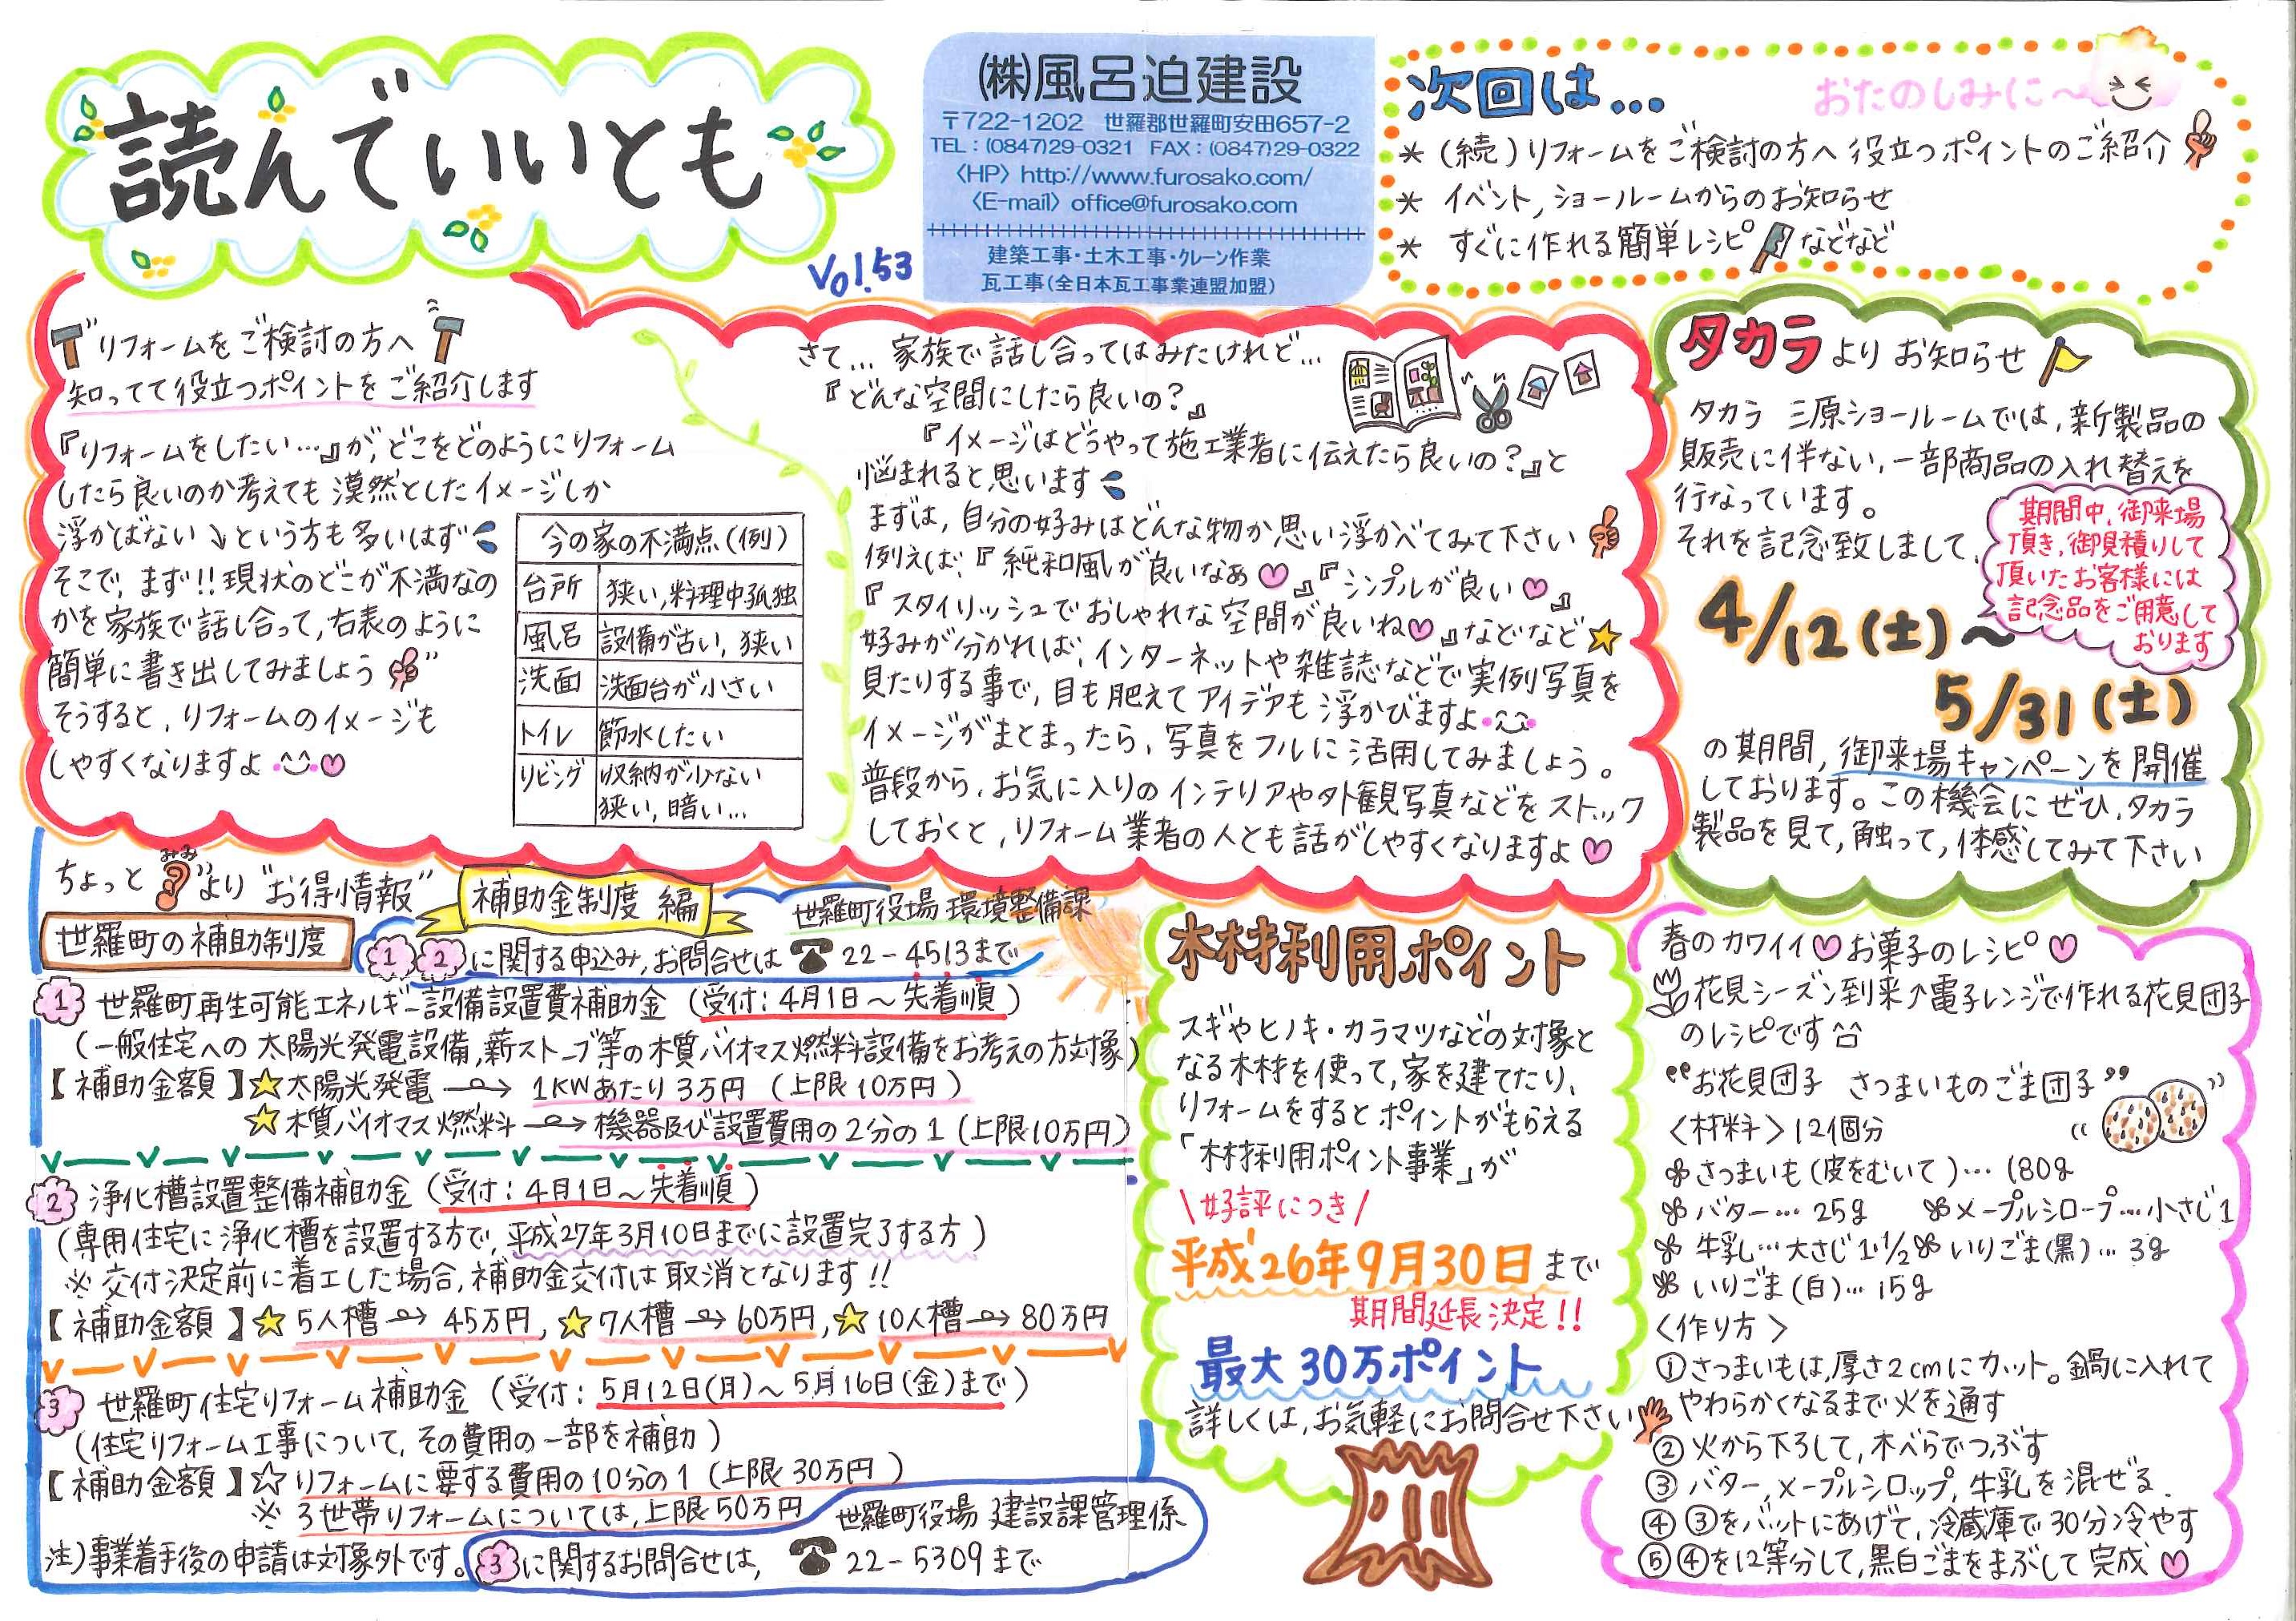 読んでいいとも
Vol.53
㈱風呂迫建設
〒722-1202 世羅郡世羅町安田657-2
TEL：(0847)29-0321 FAX：(0847)29-0322
〈HP〉http://www.furosako.com/
〈E-mail〉office@furosako.com
建築工事・土木工事・クレーン作業
瓦工事(全日本瓦工事業連盟加盟)
次回は…
おたのしみに～
＊(続)リフォームをご検討の方へ 役立つポイントのご紹介
＊ イベント,ショールームからのお知らせ
＊ すぐに作れる簡単レシピ などなど
リフォームをご検討の方へ
知ってて役立つポイントをご紹介します
『リフォームをしたい…』が,どこをどのようにリフォーム
したら良いのか考えても漠然としたイメージしか
浮かばない↘という方も多いはず
そこで,まず!!現状のどこが不満なの
かを家族で話し合って,右表のように
簡単に書き出してみましょう
そうすると,リフォームのイメージも
しやすくなりますよ
今の家の不満点(例)
台所 狭い,料理中孤独
風呂 設備が古い,狭い
洗面 洗面台が小さい
トイレ 節水したい
リビング 収納が少ない
狭い,暗い…
さて…家族で話し合ってはみたけれど…
『どんな空間にしたら良いの？』
『イメージはどうやって施工業者に伝えたら良いの？』と
悩まれると思います
まずは,自分の好みはどんな物か思い浮かべてみて下さい
例えば,『純和風が良いなぁ♡』『シンプルが良い♡』
『スタイリッシュでおしゃれな空間が良いね♡』などなど☆
好みが分かれば,インターネットや雑誌などで実例写真を
見たりする事で,目も肥えてアイデアも浮かびますよ
イメージがまとまったら,写真をフルに活用してみましょう。
普段から,お気に入りのインテリアや外観写真などをストック
しておくと,リフォーム業者の人とも話がしやすくなりますよ♡
タカラよりお知らせ
タカラ 三原ショールームでは,新製品の
販売に伴ない,一部商品の入れ替えを
行なっています。
それを記念致しまして,
期間中,御来場
頂き,御見積りして
頂いたお客様には
記念品をご用意して
おります
4/12(土)～
5/31(土)
の期間,御来場キャンペーンを開催
しております。この機会にぜひ,タカラ
製品を見て,触って,体感してみて下さい
ちょっと みみ より "お得情報"
補助金制度 編
世羅町役場 環境整備課
世羅町の補助制度
1 2 に関する申込み,お問合せは ☎ 22-4513まで
1 世羅町再生可能エネルギー設備設置費補助金(受付：4月1日～先着順)
(一般住宅への太陽光発電設備,薪ストーブ等の木質バイオマス燃料設備をお考えの方対象)
【補助金額】☆太陽光発電→1KWあたり3万円(上限10万円)
☆木質バイオマス燃料→機器及び設置費用の2分の1(上限10万円)
2 浄化槽設置整備補助金(受付：4月1日～先着順)
(専用住宅に浄化槽を設置する方で,平成27年3月10日までに設置完了する方)
※交付決定前に着工した場合,補助金交付は取消となります!!
【補助金額】☆5人槽→45万円,☆7人槽→60万円,☆10人槽→80万円
3 世羅町住宅リフォーム補助金(受付：5月12日(月)～5月16日(金)まで)
(住宅リフォーム工事について,その費用の一部を補助)
【補助金額】☆リフォームに要する費用の10分の1(上限30万円)
※3世帯リフォームについては,上限50万円
注)事業着手後の申請は対象外です。
世羅町役場 建設課管理係
3 に関するお問合せは, ☎ 22-5309まで
木材利用ポイント
スギやヒノキ・カラマツなどの対象と
なる木材を使って,家を建てたり,
リフォームをするとポイントがもらえる
「木材利用ポイント事業」が
\好評につき/
平成26年9月30日まで
期間延長決定!!
最大30万ポイント
詳しくは,お気軽にお問合せ下さい
春のカワイイ♡お菓子のレシピ♡
花見シーズン到来↑電子レンジで作れる花見団子
のレシピです
"お花見団子 さつまいものごま団子"
〈材料〉12個分
さつまいも(皮をむいて)… 180g
バター… 25g メープルシロープ…小さじ1
牛乳…大さじ1・1/2 いりごま(黒)… 3g
いりごま(白)… 15g
〈作り方〉
①さつまいもは,厚さ2cmにカット。鍋に入れて
やわらかくなるまで火を通す
②火から下ろして,木べらでつぶす
③バター,メープルシロップ,牛乳を混ぜる.
④③をバットにあげて,冷蔵庫で30分冷やす
⑤④を12等分して,黒白ごまをまぶして完成♡